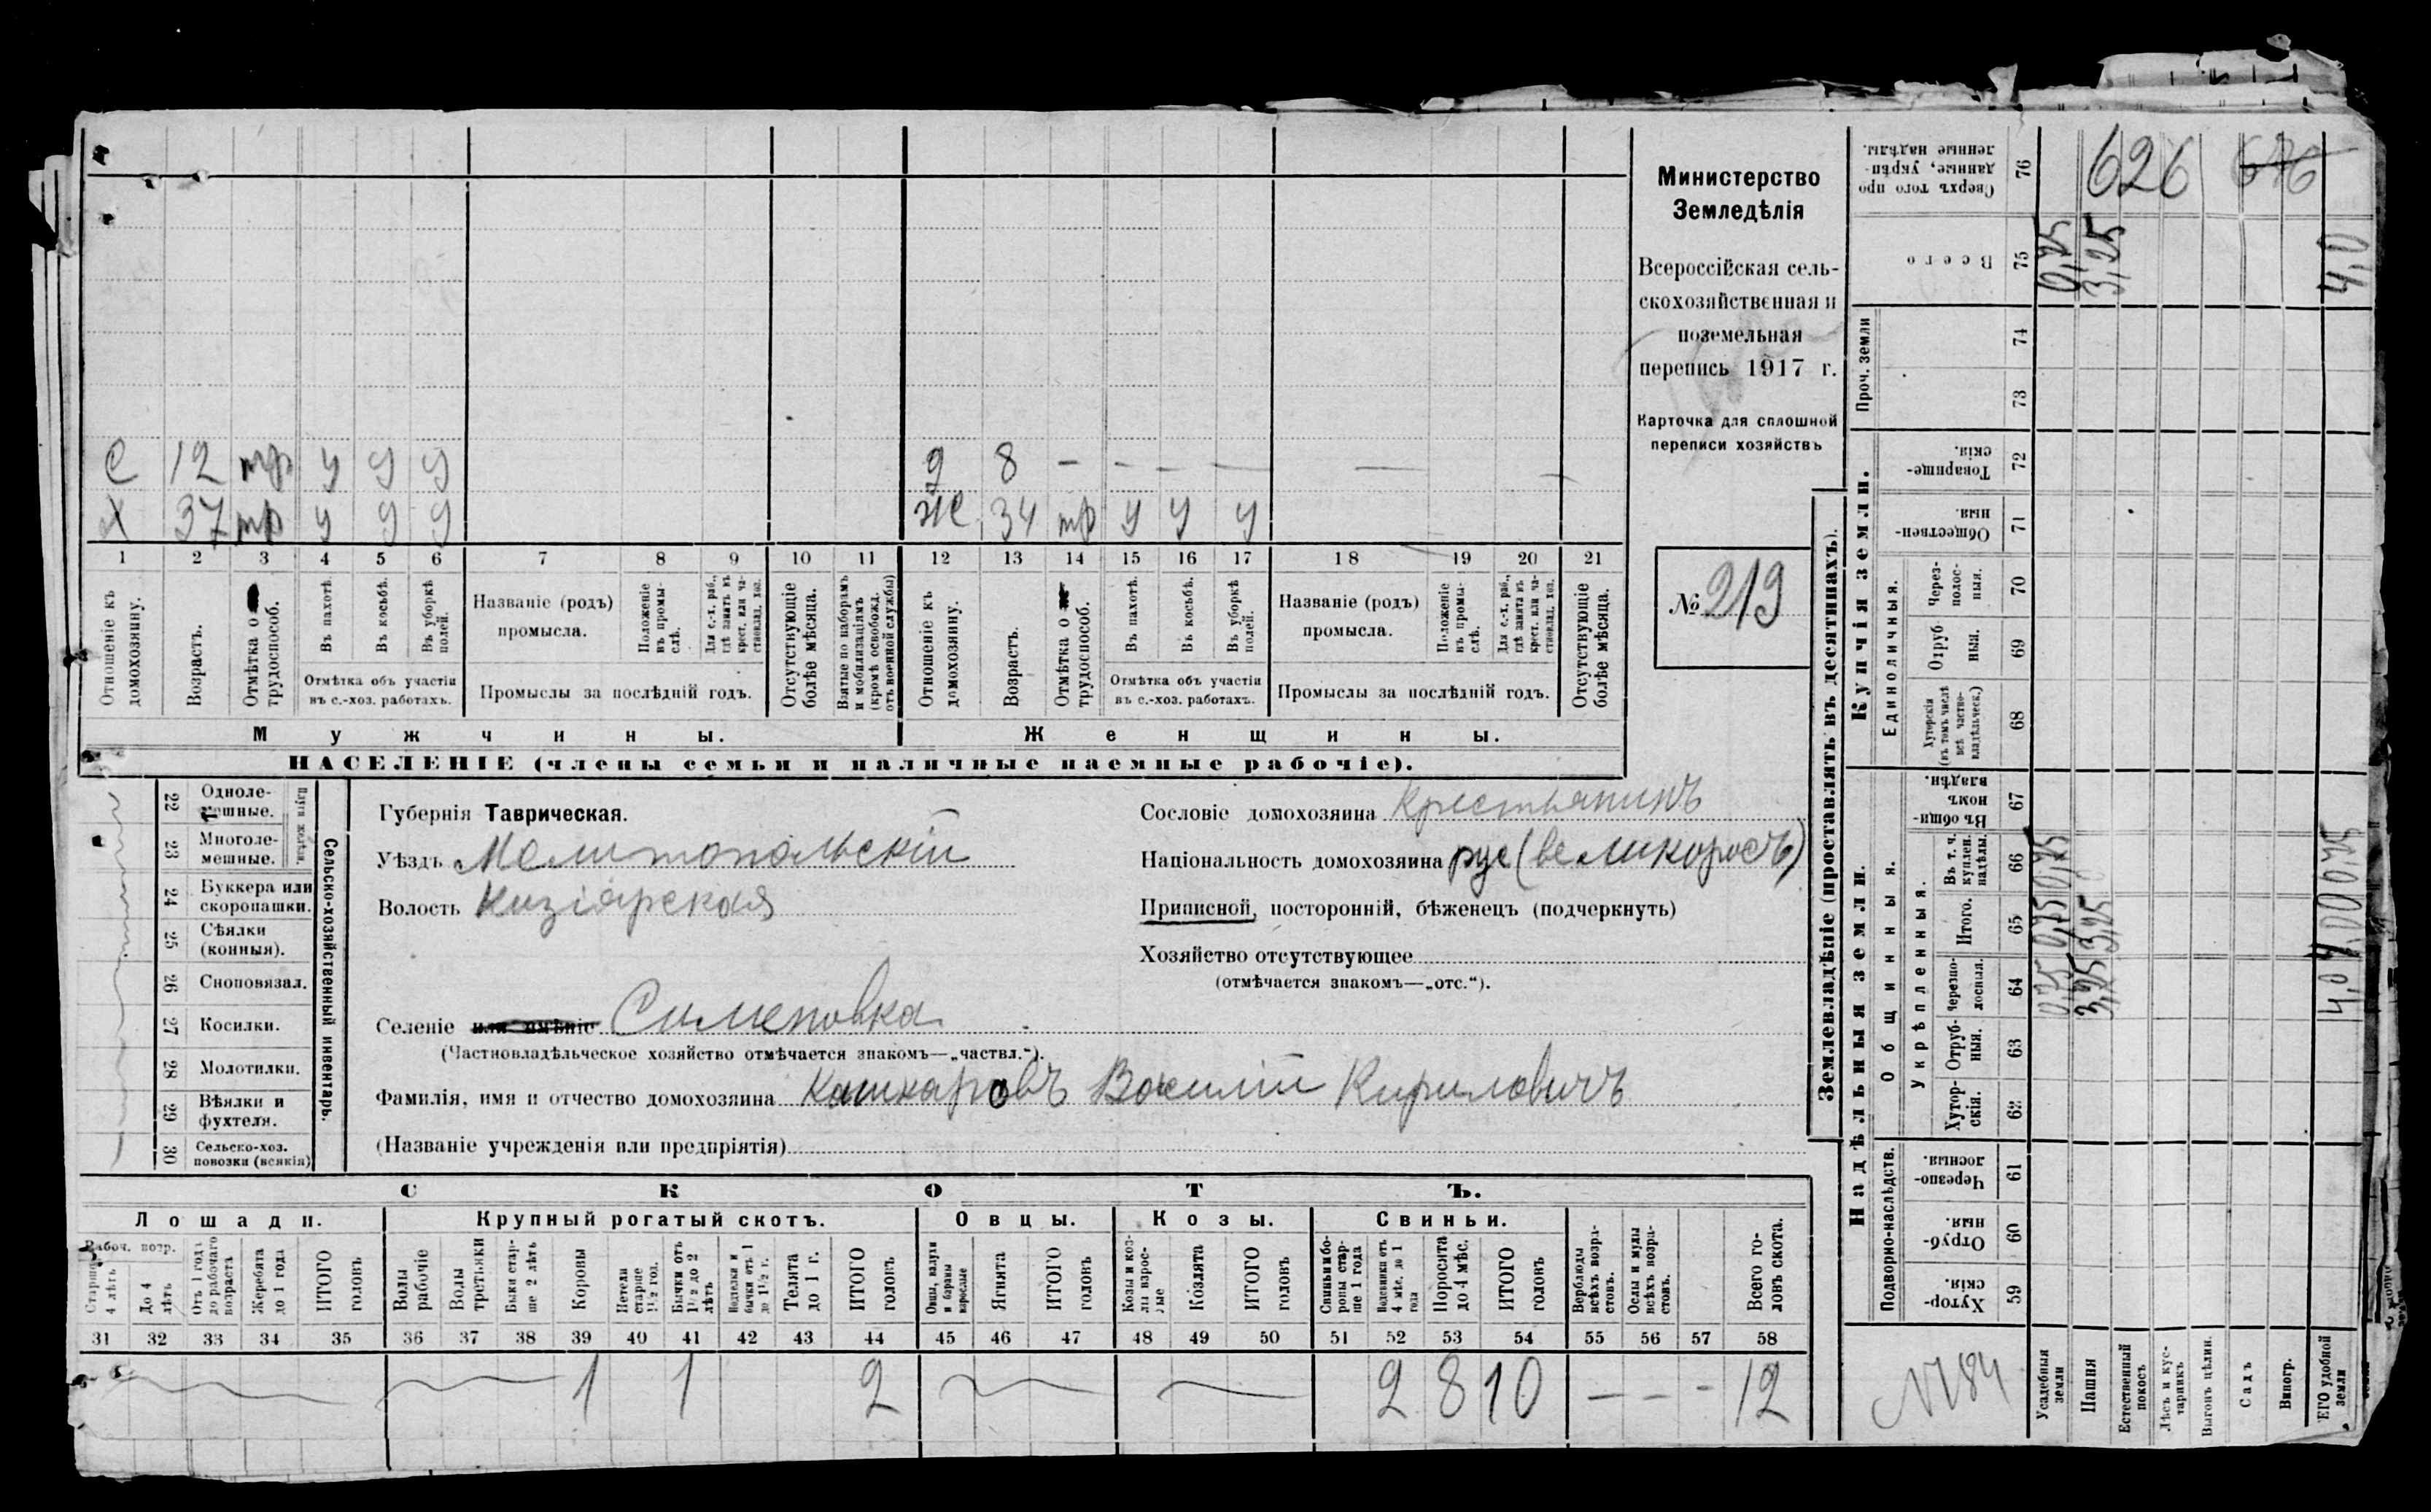 С 12 тр у у у д 8 - - - — — —
Х 37 тр у у у Ж 34 тр у у у
1 2 3 4 5 6 7 8 9 10 11 12 13 14 15 16 17 18 19 20 21
Отношеніе къ домохозяину.
Возрастъ.
Отмѣтка о трудоспособ.
Въ пахотѣ.
Въ косьбѣ.
Въ уборкѣ полей.
Отмѣтка объ участіи
въ с.-хоз. работахъ.
Названіе (родъ)
промысла.
Положеніе въ промыслѣ.
Для с.-х. раб., гдѣ занятъ въ крест. или частновлад. хоз.
Промыслы за послѣдній годъ.
Отсутствующіе болѣе мѣсяца.
Взятые по наборамъ и мобилизаціямъ (кромѣ освобожд. отъ военной службы)
Отношеніе къ домохозяину.
Возрастъ.
Отмѣтка о трудоспособ.
Въ пахотѣ.
Въ косьбѣ.
Въ уборкѣ полей.
Отмѣтка объ участіи
въ с.-хоз. работахъ.
Названіе (родъ)
промысла.
Положеніе въ промыслѣ.
Для с.-х. раб., гдѣ занята въ крест. или частновлад. хоз.
Промыслы за послѣдній годъ.
Отсутствующіе болѣе мѣсяца.
Мужчины. Женщины.
НАСЕЛЕНІЕ (члены семьи и наличные наемные рабочіе).
Министерство
Земледѣлія
Всероссійская сель-
скохозяйственная и
поземельная
перепись 1917 г.
Карточка для сплошной
переписи хозяйствъ
№ 219
22 Однолемешные.
23 Многолемешные.
Плуги желѣзн.
24 Буккера или скоропашки.
25 Сѣялки (конныя).
26 Сноповязал.
27 Косилки.
28 Молотилки.
29 Вѣялки и фухтеля.
30 Сельско-хоз. повозки (всякія)
Сельско-хозяйственный инвентарь.
Губернія Таврическая.
Уѣздъ Мелитопольскій
Волость Кизіярская
Селеніе или имѣніе Семеновка
(Частновладѣльческое хозяйство отмѣчается знакомъ—„частвл.“).
Фамилія, имя и отчество домохозяина Кашкаровъ Василій Кириловичъ
(Названіе учрежденія или предпріятія)
Сословіе домохозяина Крестьянинъ
Національность домохозяина рус (великоросъ)
Приписной, посторонній, бѣженецъ (подчеркнуть)
Хозяйство отсутствующее
(отмѣчается знакомъ—„отс.“).
СКОТЪ.
Лошади. Крупный рогатый скотъ. Овцы. Козы. Свиньи.
Рабоч. возр.
Старше 4 лѣтъ
До 4 лѣтъ
Отъ 1 года до рабочаго возраста
Жеребята до 1 года
ИТОГО головъ
Волы рабочіе
Волы третьяки
Быки старше 2 лѣтъ
Коровы
Нетели старше 1½ год.
Бычки отъ 1½ до 2 лѣтъ
Нетелки и бычки отъ 1 до 1½ г.
Телята до 1 г.
ИТОГО головъ
Овцы, валухи и бараны взрослые
Ягнята
ИТОГО головъ
Козы и козлы взрослые
Козлята
ИТОГО головъ
Свиньи и боровы старше 1 года
Подсвинки отъ 4 мѣс. до 1 года
Поросята до 4 мѣс.
ИТОГО головъ
Верблюды всѣхъ возрастовъ.
Ослы и мулы всѣхъ возрастовъ.
Всего головъ скота.
31 32 33 34 35 36 37 38 39 40 41 42 43 44 45 46 47 48 49 50 51 52 53 54 55 56 57 58
1 1 2 2 8 10 — - - 12
Землевладѣніе (проставлять въ десятинахъ).
Сверхъ того проданные, укрѣпленные надѣлы. 76
626 676
Всего 75 0,75 3,25 4,0
Купчія земли.
Проч. земли 74 73
Товарищескія. 72
Общественныя. 71
Единоличныя.
Черезполосныя. 70
Отрубныя. 69
Хуторскія (въ томъ числѣ всѣ частновладѣльческ.) 68
Надѣльныя земли.
Общинныя.
Въ общинномъ владѣн. 67
Укрѣпленныя.
Въ т. ч. куплен. надѣлы. 66 0,75
Итого. 65 0,75 3,25
Черезполосныя. 64 0,75 3,25 4,0
Отрубныя. 63
Хуторскія. 62
Подворно-наслѣдств.
Черезполосныя. 61
Отрубныя. 60
Хуторскія 59
№ 184
Усадебныя земли
Пашня
Естественный покосъ
Лѣсъ и кустарникъ
Выгонъ цѣлин.
Садъ
Виногр.
ЕГО удобной земли